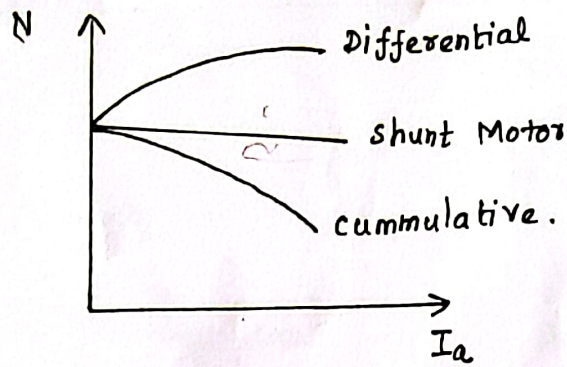 N
Differential
Shunt Motor
Cummulative.
Ia